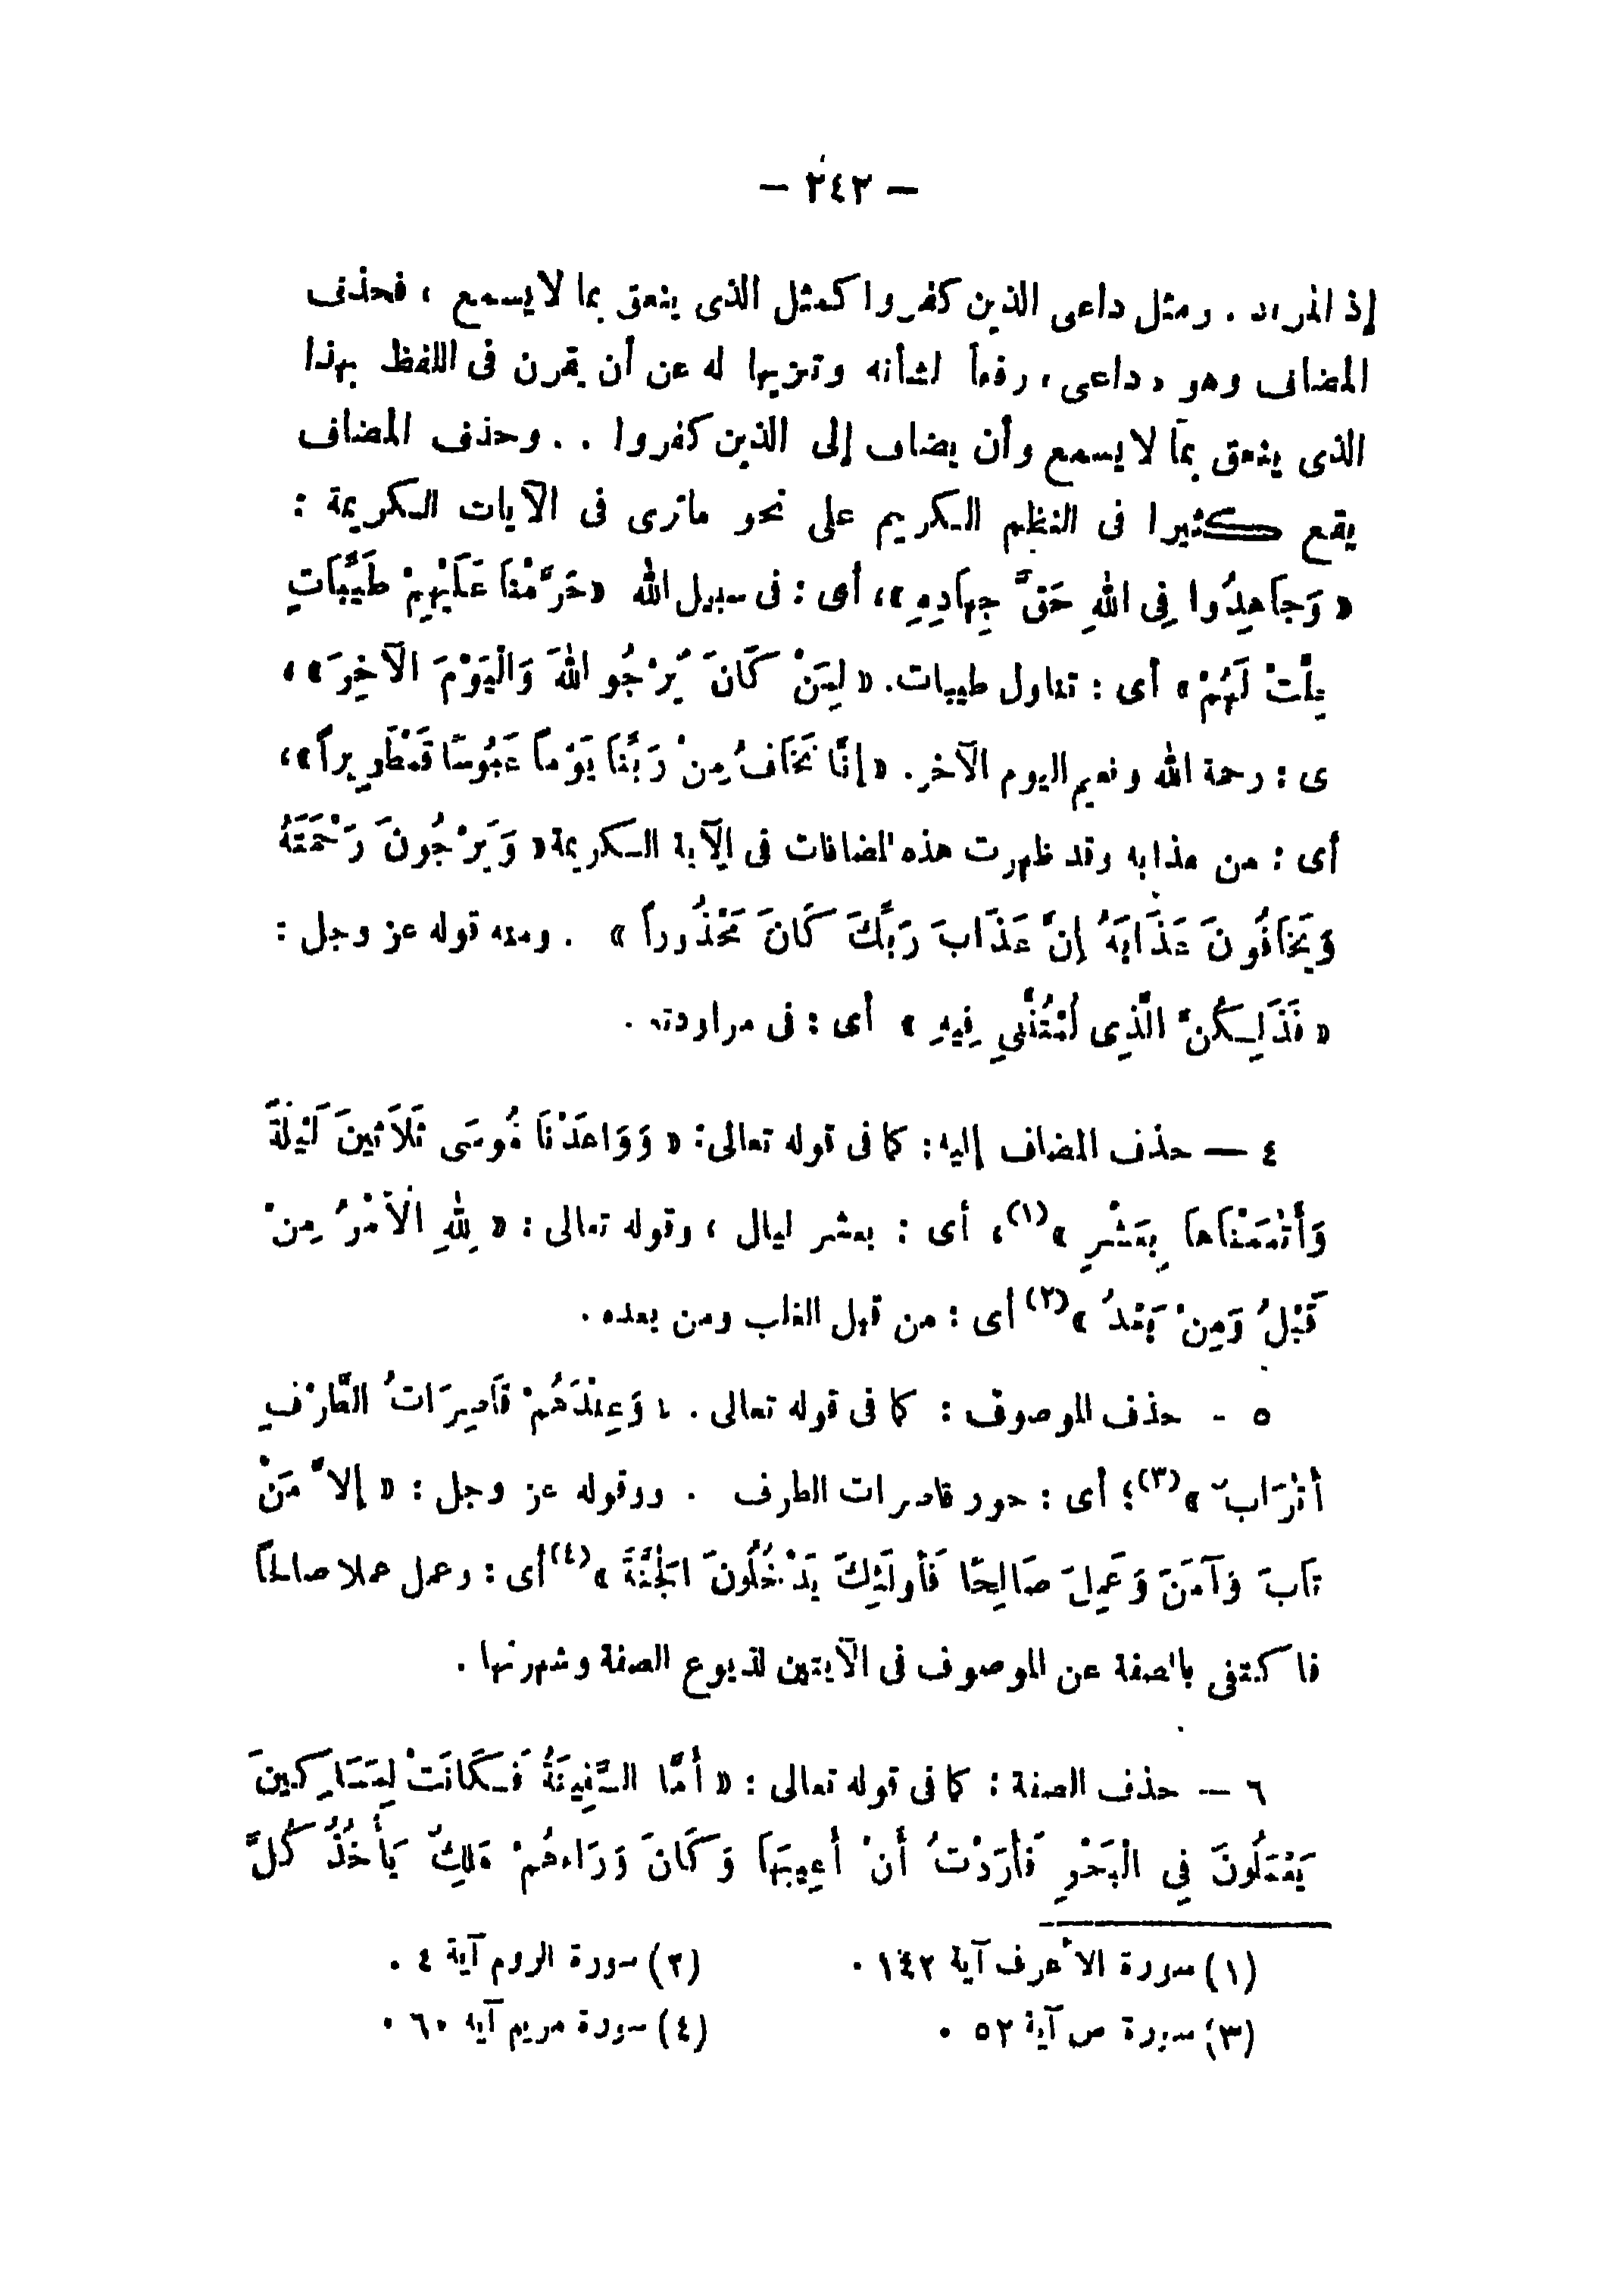 — ٢٤٢ —
إذ المراد . ومثل داعى الذين كفروا كمثل الذى ينعق بما لا يسمع ، فحذف
المضاف وهو « داعى » رفعاً لشأنه وتنزيها له عن أن يقرن فى اللفظ بهذا
الذى ينعق بما لا يسمع وأن يضاف إلى الذين كفروا . . وحذف المضاف
يقع كثيرا فى النظم الكريم على نحو ماترى فى الآيات الكريمة :
« وَجاَهِدُوا فِى اللهِ حَقَّ جِهادِهِ »، أى : فى سبيل الله « حَرَّمْنا عَلَيْهِمْ طَيِّبَاتٍ
حِلَّتْ لَهُمْ » أى : تناول طيبات. « لِمَنْ كَانَ يَرْجُو اللهَ وَالْيَوْمَ الآخِرَ » ،
ى : رحمة الله ونعيم اليوم الآخر. « إنَّا نَخَافُ مِنْ رَبِّنَا يَوْماً عَبُوسًا قَمْطَرِيراً »،
أى : من عذابه وقد ظهرت هذه المضافات فى الآية الكريمة « وَيَرْجُونَ رَحْمَتَهُ
وَيَخَافُونَ عَذَابَهُ إنَّ عَذَابَ رَبِّكَ كَانَ مَحْذُوراً » . ومنه قوله عز وجل :
« فَذَلِكُنَّ الَّذِى لُمْتُنَّنِى فِيهِ » أى : فى مراودته .
٤ — حذف المضاف إليه : كما فى قوله تعالى: « وَوَاعَدْنَا مُوسَى ثَلاَثِينَ لَيْلَةً
وَأَتْمَمْنَاهاَ بِعَشْرٍ »(١)، أى : بعشر ليال ، وقوله تعالى : « لِلهِ الْأَمْرُ مِنْ
قَبْلُ وَمِنْ بَعْدُ »(٢) أى : من قبل الغلب ومن بعده .
٥ - حذف الموصوف : كما فى قوله تعالى . « وَعِنْدَهُمْ قَاصِرَاتُ الطَّرْفِ
أتْرَابٌ »(٣)؛ أى : حور قاصرات الطرف . ووقوله عز وجل : « إلاَّ مَنْ
تاَبَ وَآمَنَ وَعَمِلَ صَالِحًا فَأولَئِكَ يَدْخُلُونَ الجَنَّةَ »(٤) أى : وعمل عملا صالحاً
فاكتفى بالصفة عن الموصوف فى الآيتين لذيوع الصفة وشهرتها .
٦ — حذف الصفة : كما فى قوله تعالى : « أمَّا السَّفِينَةُ فَكَانَتْ لِمَسَاكِينَ
يَعْمَلُونَ فِى الْبَحْرِ فَأَرَدْتُ أَنْ أَعِيبَهَا وَكَانَ وَرَاءهُمْ مَلِكٌ يَأْخُذُ كُلَّ
(١) سورة الأعرف آية ١٤٢ .
(٢) سورة الروم آية ٤ .
(٣) سورة ص آية ٥٢ .
(٤) سورة مريم آية ٦٠ .